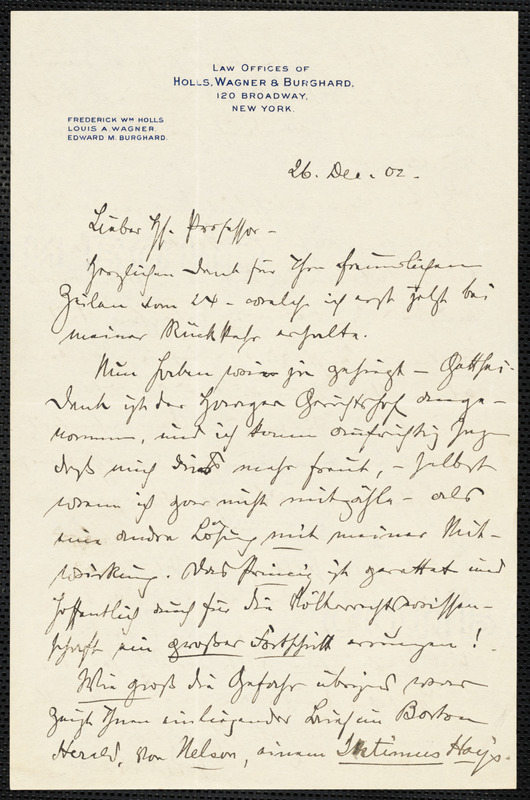 LAW OFFICES OF
HOLLS, WAGNER & BURGHARD,
120 BROADWAY,
NEW YORK.
FREDERICK WM HOLLS
LOUIS A. WAGNER.
EDWARD M. BURGHARD.
26. Dec. 02.
Lieber Hr. Professor –
Herzlichen Dank für Ihre freundlichen
Zeilen vom 24 – welche ich erst jetzt bei
meiner Rückkehr erhalte.
Nun haben wir ja gesiegt – Gott sei
Dank ist der Haager Gerichtshof ange-
nommen, und ich kann aufrichtig sagen
daß mich dies mehr freut, – selbst
wenn ich gar nicht mitzähle – als
eine andre Lösung mit meiner Mit-
wirkung. Das Princip ist gerettet und
hoffentlich auch für die Völkerrechtswissen-
schaft ein großer Fortschritt errungen!
Wie groß die Gefahr übrigens war
zeigt Ihnen einliegender Brief im Boston
Herald, von Nelson, einem Intimus Hay's.